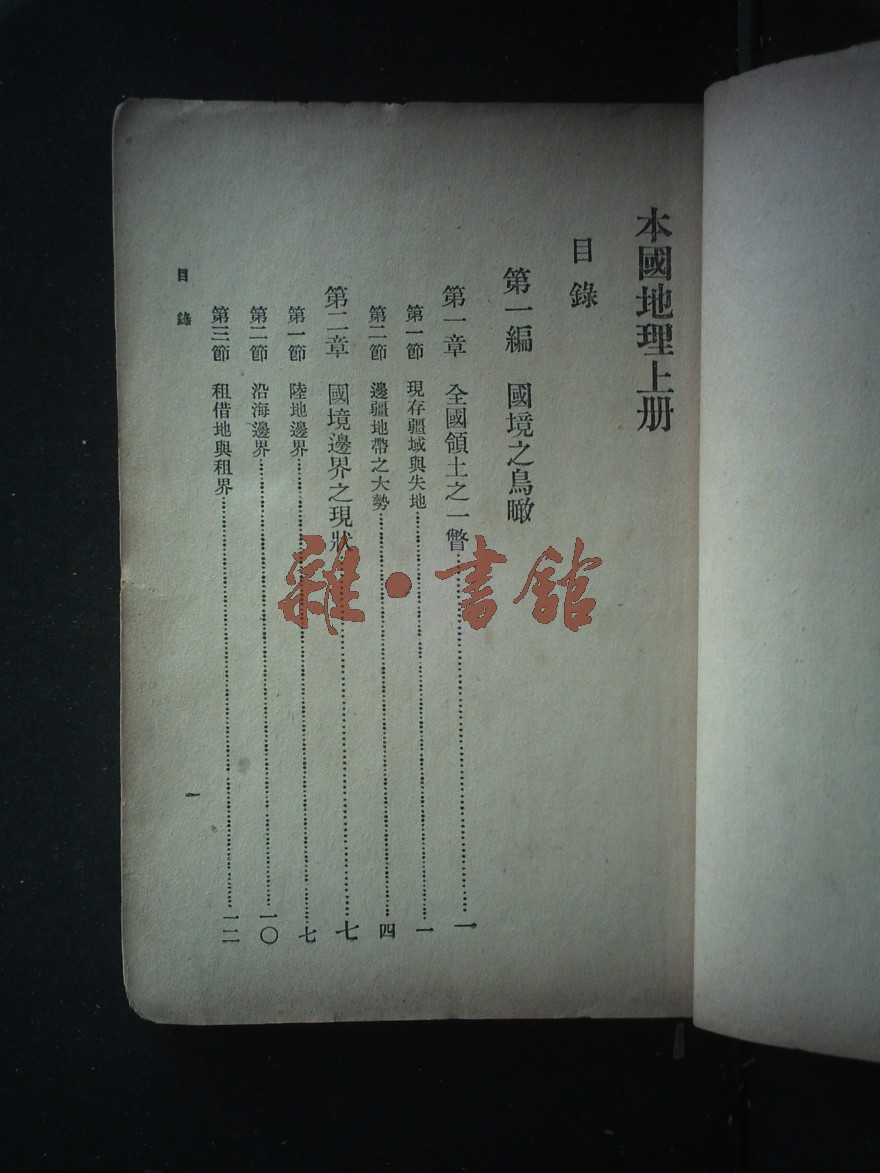 本國地理上册
目錄
第一編　國境之鳥瞰
第一章　全國領土之一瞥……一
第一節　現存疆域與失地……一
第二節　邊疆地帶之大勢……四
第二章　國境邊界之現狀……七
第一節　陸地邊界……七
第二節　沿海邊界……一〇
第三節　租借地與租界……一二
目錄
一
雜·書館